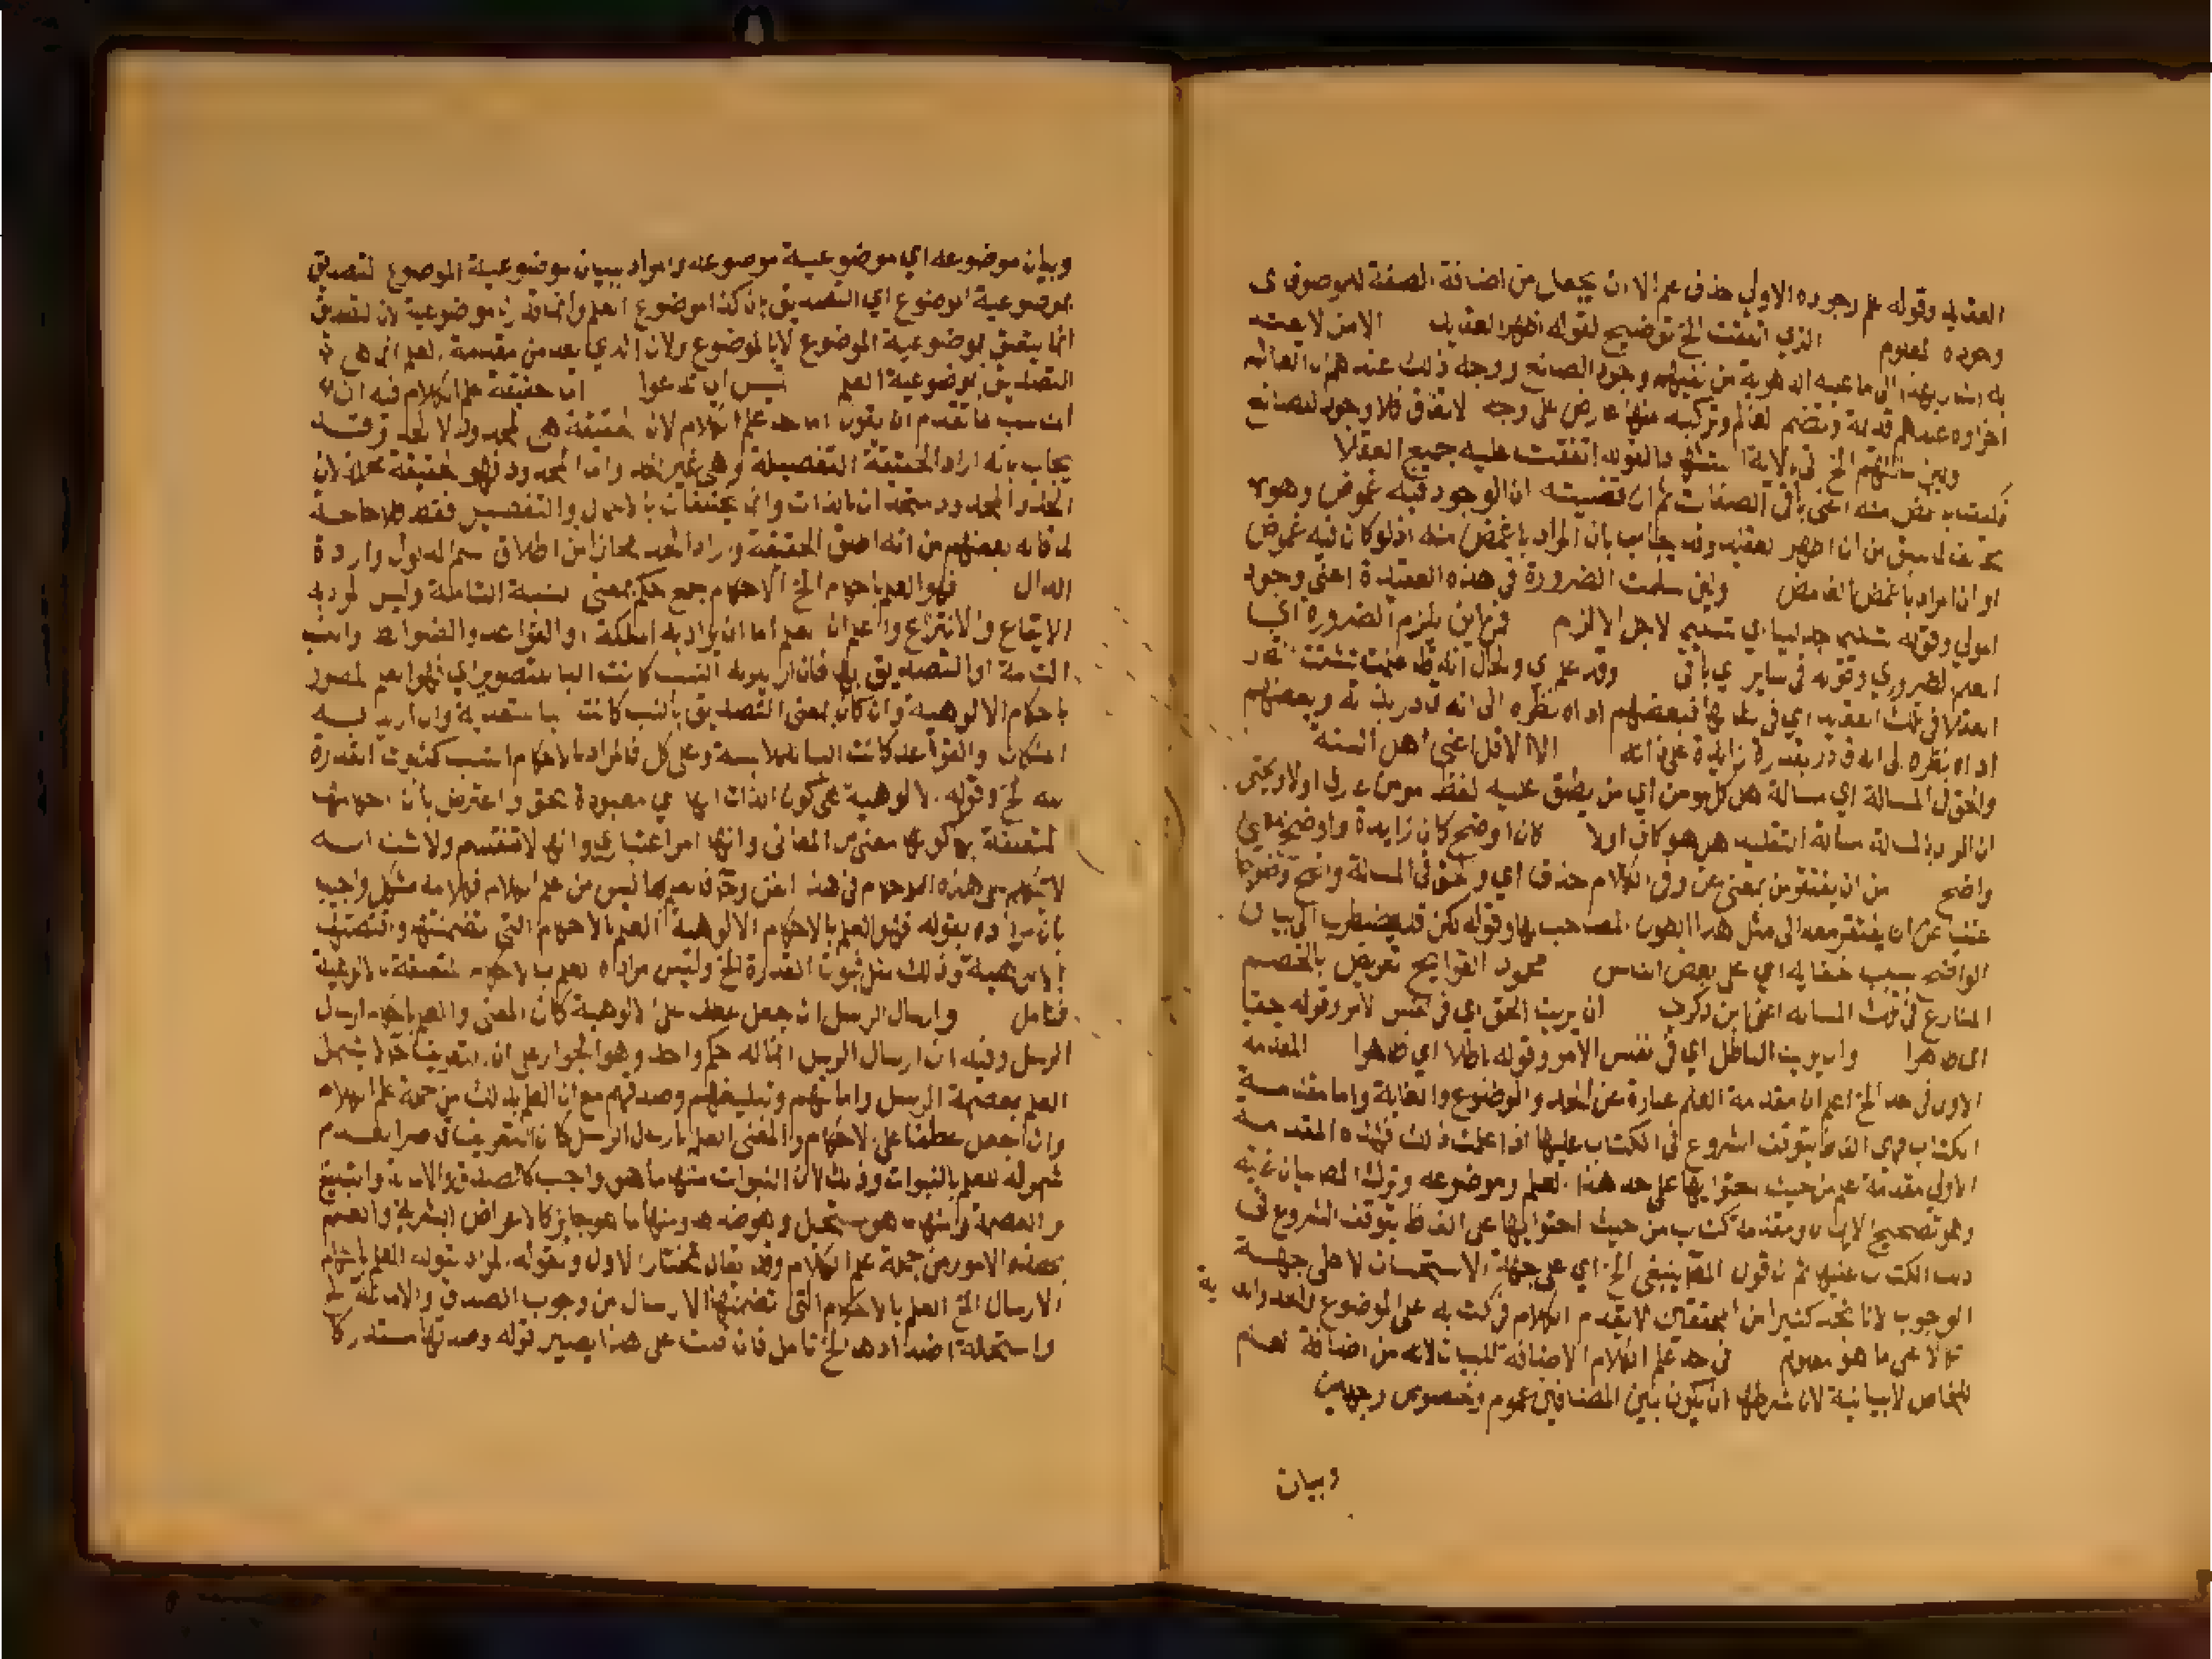 العقايد وقوله علم وجوده الاولي حذف علم الا ان يجعل من اضافة الصفة للموصوف اى
وجوده المعلوم الذي اتفقت الخ توضيح لقوله اظهر العقايد الا من لا يعتد
به اشار بهذا الى ما عليه الدهرية من نفيهم وجود الصانع ووجه ذلك عندهم ان العالم
اجزاوه عندهم قديمة وتركيبه منها عارض على وجه الاتفاق فلا وجود للصانع
ولين سالتهم الخ في الاية استشهاد لقوله اتفقت عليه جميع العقلا
فكيف بما اغمض منه اعني باقي الصفات ثم ان قضيته ان الوجود فيه غموض وهو
مخالف لما سبق من ان اظهر العقايد وقد يجاب بان المراد باغمض منه اذ لو كان فيه غموض
او ان المراد باغمض الغامض ولين سلمت الضرورة في هذه العقيدة اعني وجود
المولي وقوله تسليم جدليا اي تسليم لاجل الالزام فمن اين يلزم الضرورة اي
العلم الضروري وقوله في ساير اي باقي وقد علم اى والحال انه قد علمت تشتت انظار
العقلا في تلك العقايد اي في فبعضهم اداه نظره الى انه قادر بذاته وبعضهم
اداه نظره الى انه قادر بقدرة زايدة على ذاته الا الاقل اعني اهل السنة
والحق ان المسالة اي مسالة هل كل مومن اي من يطلق عليه لفظ مومن عارف اولا ويحتمل
ان المراد بالمسالة مسالة التقليد هل هو كاف اولا لان اوضح كان زايدة واوضح بمعنى
واضح من ان يفتقر من بمعنى عن وفي الكلام حذف اي والحق في المسالة واضح وضوحا
غنيا عن ان يفتقر معه الى مثل هذا المصاحب لها وقوله لكن قد يضطر الى بيان
الواضح بسبب خفايه اي على بعض الناس محمود القرايح تعريض بالخصم
المنازع في تلك المسالة اعني ابن ذكري ان يريد الحق اي في نفس الامر وقوله حقا
اي ظاهرا وان يريد الباطل اي في نفس الامر وقوله باطلا اي ظاهرا المقدمة
الاولى في حد الخ اعلم ان مقدمة العلم عبارة عن الحد والموضوع والغاية واما مقدمة
الكتاب فهي الفاظ يتوقف الشروع في الكتاب عليها اذا علمت ذلك فهذه المقدمة
الاولي مقدمة علم من حيث احتوايها على حد هذا العلم وموضوعه وترك المص بيان غايته
وهو تصحيح الايمان ومقدمة كتاب من حيث احتوايها على الفاظ يتوقف الشروع في
ذلك الكتاب عليها ثم ان قول المص ينبغي الخ اي على جهة الاستحسان لا على جهة
الوجوب لانا نجد كثيرا من المحققين لا يقدم الكلام في كتابه على الموضوع والحد والغاية
محالا على ما هو معلوم في حد علم الكلام الاضافة للبيان لانه من اضافة العام
للخاص لا بيانية لان شرطها ان يكون بين المضافين عموم وخصوص وجهين
وبيان
وبيان موضوعه اي موضوعية موضوعه والمراد ببيان موضوعية الموضوع التصديق
بموضوعية الموضوع اي التصديق بان كذا موضوع العلم وانما قدرنا موضوعية لان التصديق
انما يتعلق بموضوعية الموضوع لا بالموضوع ولان الذي يعد من مقدمة العلم انما هي
التصديق بموضوعية العلم ليس ان تدعوا اما حقيقة علم الكلام فيه ان
المناسب لما تقدم ان يقول اما حد علم الكلام لان الحقيقة هي المحدود لا الحد وقد
يجاب بانه اراد الحقيقة التفصيلة وهي عين الحد واما المحدود فهو الحقيقة مجملة لان
الحد والمحدود متحدان بالذات وانما يختلفان بالاجمال والتفصيل فقط فلا حاجة
لما قاله بعضهم من انه اطلق الحقيقة واراد الحد مجازا من اطلاق اسم المدلول وارادة
الدال فهو العلم باحكام الخ الاحكام جمع حكم بمعنى النسبة التامة وليس المراد به
الايقاع والانتزاع واعلم ان العلم اما ان يراد به الملكة او القواعد والضوابط والنسب
التامة او التصديق بها فان اريد به النسب كانت البا للتصوير اي فهو العلم المصور
باحكام الالوهية وان كان بمعنى التصديق بالنسب كانت البا للتعدية وان اريد به
الملكات والقواعد كانت البا للملابسة وعلى كل فالمراد بالاحكام النسب كثبوت القدرة
لله الخ وقوله الالوهية هى كون الذات الها اي معبودة بحق واعترض بان احكامها
المتعلقة بها كونها معنى من المعاني وانها امر اعتباري وانها لا تنقسم ولا شك انه
لا تكلم على هذه الاحكام في هذا الفن وحينئذ فالعلم بها ليس من علم الكلام فكلامه مشكل واجيب
بان مراده بقوله فهو العلم بالاحكام الالوهية العلم بالاحكام التي تضمنتها واقتضتها
الالوهية وذلك مثل ثبوت القدرة الخ وليس مراده العلم بالاحكام المتعلقة بالالوهية
فتامل وارسال الرسل ان جعل عطف على الالوهية كان المعنى والعلم باحكام ارسال
الرسل وفيه ان ارسال الرسل انما له حكم واحد وهو الجواز على ان التعريف حينئذ لا يشمل
العلم بعصمة الرسل وامانتهم وتبليغهم وصدقهم مع ان العلم بذلك من جملة علم الكلام
وان جعل عطفا على الاحكام والمعنى العلم بارسال الرسل كان التعريف قاصرا لعدم
شموله للعلم بالنبوات وذلك لان النبوات منها ما هو واجب كالصدق والامانة والتبليغ
والعصمة ومنها ما هو مستحيل وهو ضدها ومنها ما هو جايز كالاعراض البشرية والعلم
بهذه الامور من جملة علم الكلام وقد يقال نختار الاول ونقول المراد بقوله العلم باحكام
الارسال الخ العلم بالاحكام التي تضمنها الارسال من وجوب الصدق والامانة الخ
واستحالة اضدادها الخ تامل فان قلت على هذا يصير قوله وصدقها مستدركا